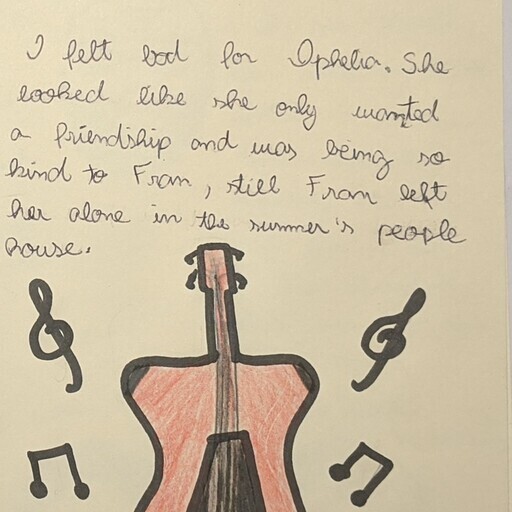 I felt bad for Ophelia. She
looked like she only wanted
a friendship and was being so
kind to Fran, still Fran left
her alone in the summer's people
house.